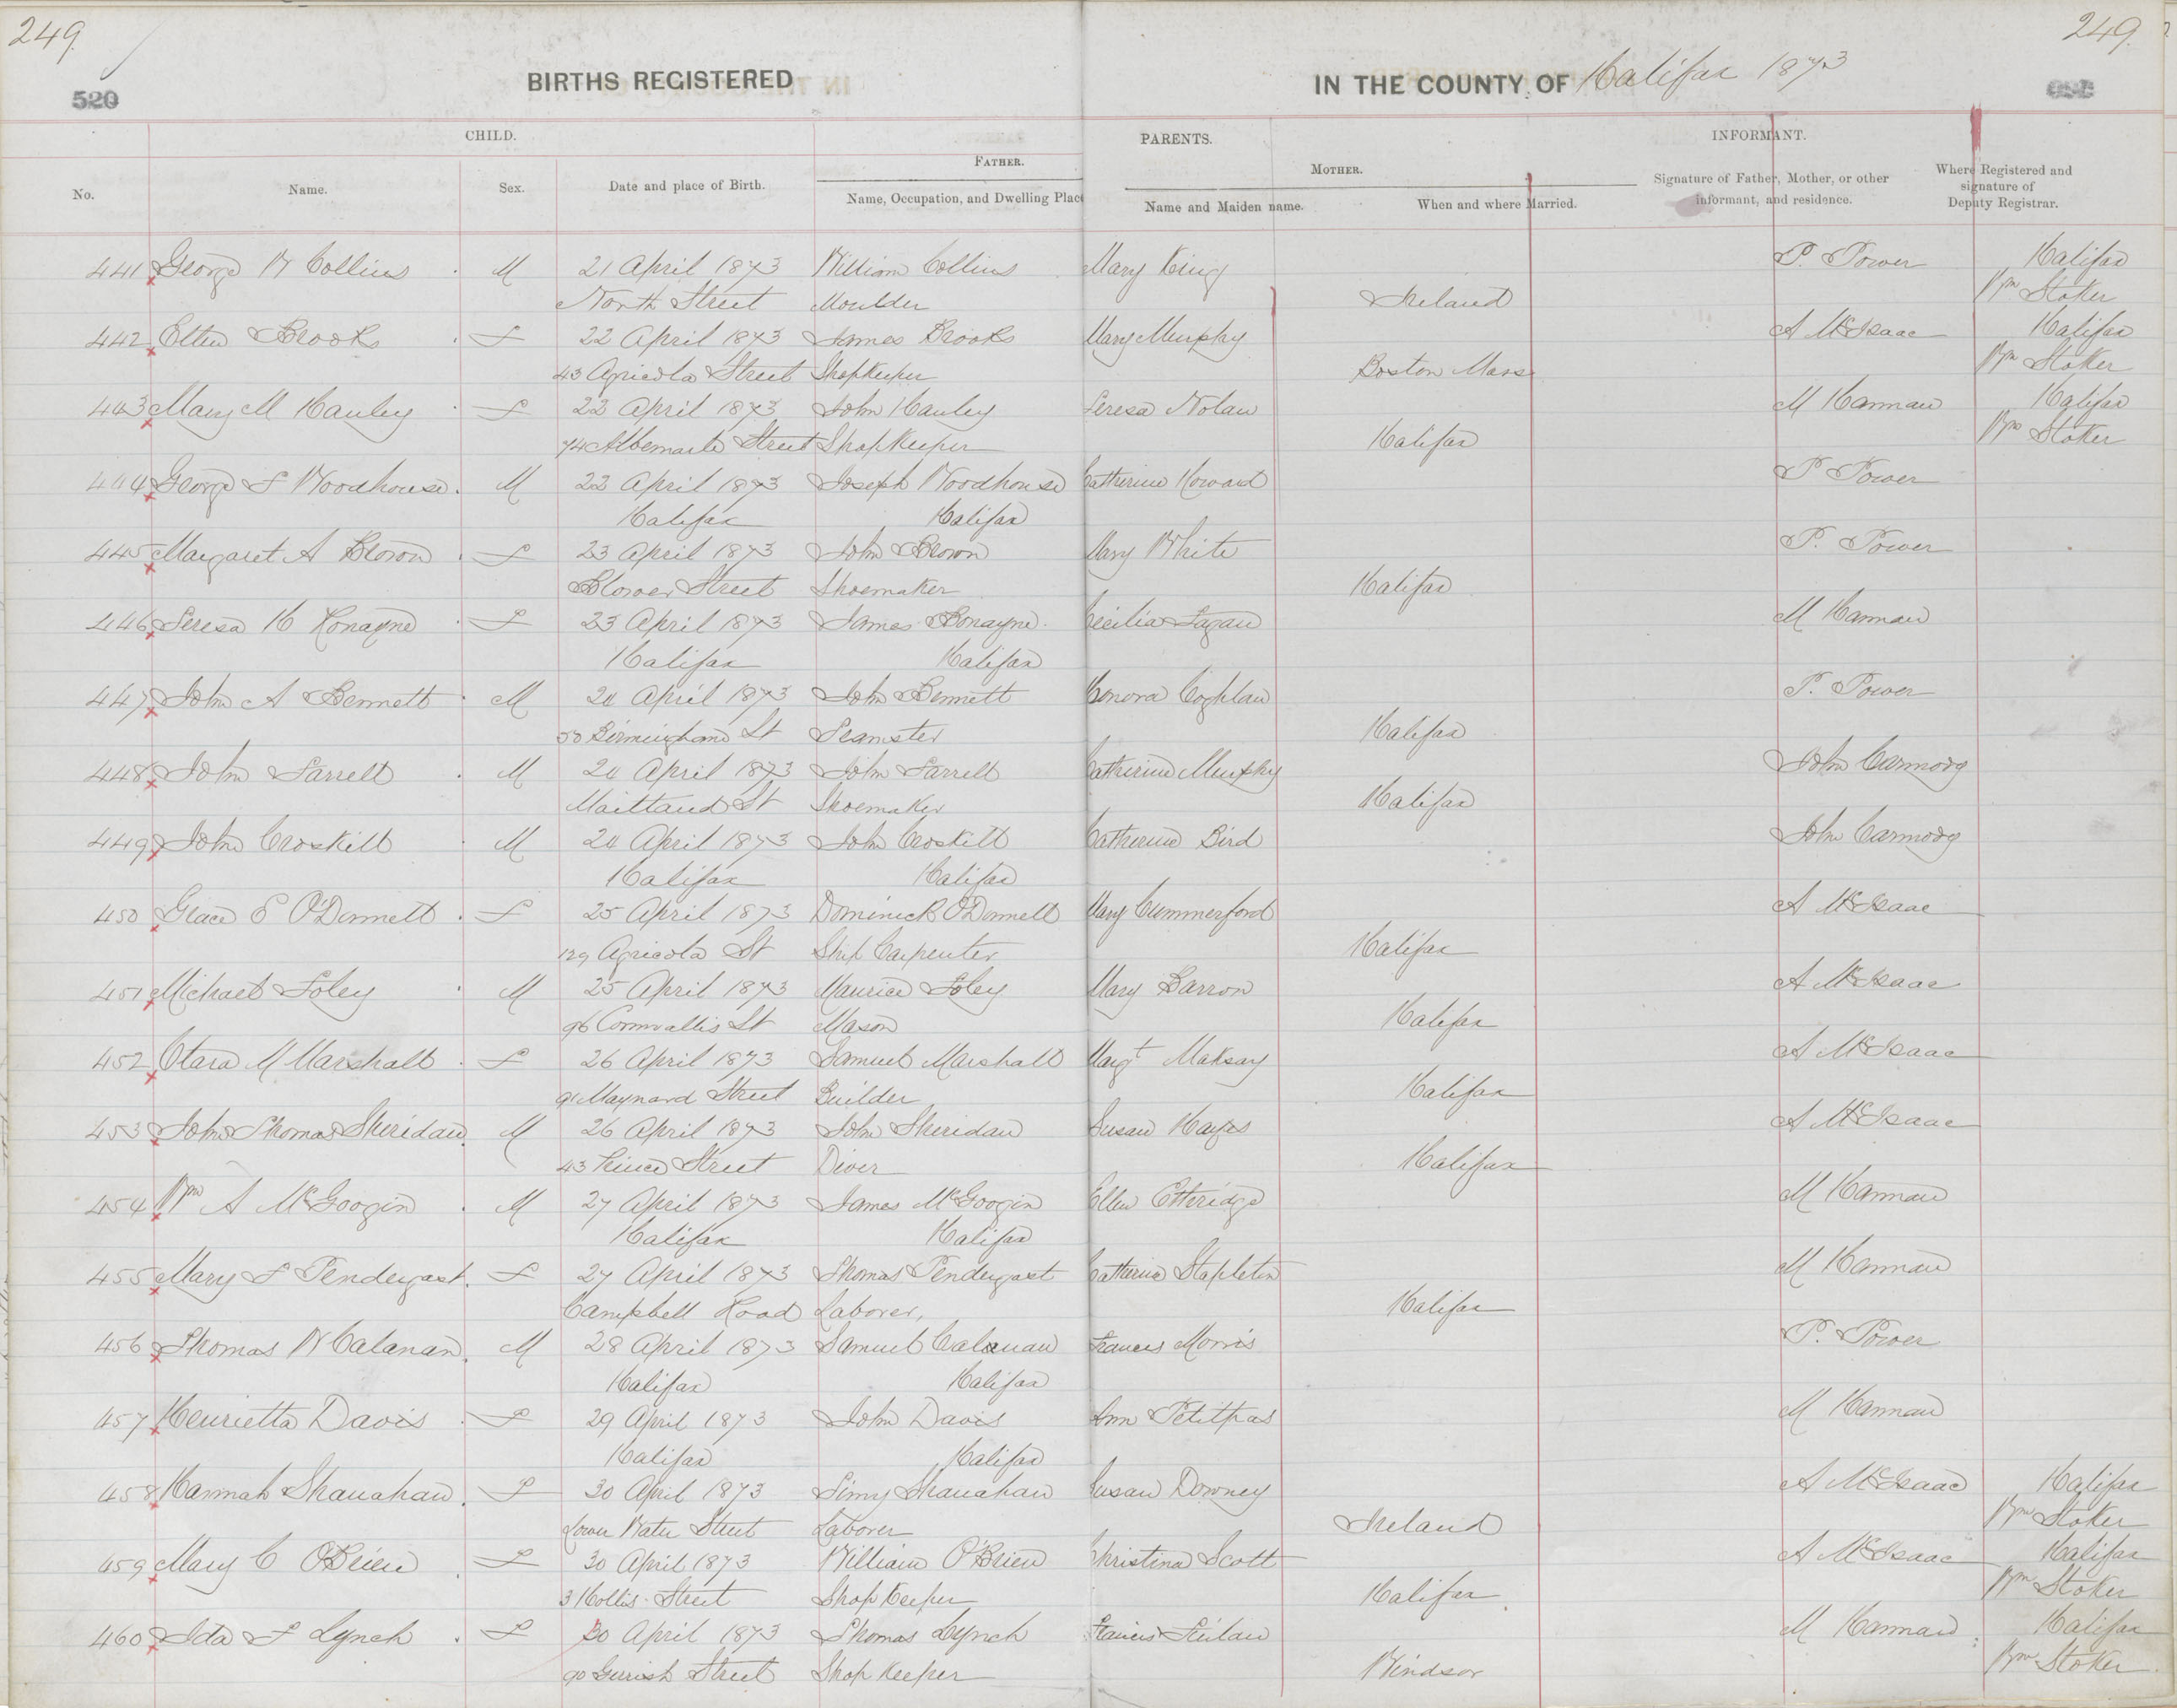 249.
249.
520
BIRTHS REGISTERED
IN THE COUNTY OF Halifax 1873
CHILD.
PARENTS.
INFORMANT.
FATHER.
MOTHER.
No.
Name.
Sex.
Date and place of Birth.
Name, Occupation, and Dwelling Place
Name and Maiden name.
When and where Married.
Signature of Father, Mother, or other informant, and residence.
Where Registered and signature of Deputy Registrar.
441 George W Collins M 21 April 1873 William Collins Mary King P. Power Halifax
North Street Moulder Ireland Wm Stoker
442 Ellen Brooks F 22 April 1873 James Brooks Mary Murphy A McIsaac Halifax
43 Agricola Street Shopkeeper Boston Mass Wm Stoker
443 Mary M Hanley F 22 April 1873 John Hanley Teresa Nolan M Hannan Halifax
74 Albemarle Street ShopKeeper Halifax Wm Stoker
444 George F Woodhouse M 22 April 1873 Joseph Woodhouse Catherine Howard P Power
Halifax Halifax
445 Margaret A Brown F 23 April 1873 John Brown Mary White P. Power
Blower Street Shoemaker Halifax
446 Teresa H Ronayne F 23 April 1873 James Ronayne Cecilia Fagan M Hannan
Halifax Halifax
447 John A Bennett M 24 April 1873 John Bennett Honora Coghlan P. Power
50 Birmingham St Teamster Halifax
448 John Farrell M 24 April 1873 John Farrell Catherine Murphy John Carmody
Maitland St Shoemaker Halifax
449 John Croskill M 24 April 1873 John Croskill Catherine Bird John Carmody
Halifax Halifax
450 Grace E O'Donnell F 25 April 1873 Dominick O'Donnell Mary Cummerford A McIsaac
129 Agricola St Ship Carpenter Halifax
451 Michael Foley M 25 April 1873 Maurice Foley Mary Barron A McIsaac
96 Cornwallis St Mason Halifax
452 Clara M Marshall F 26 April 1873 Samuel Marshall Margt Maksay A McIsaac
91 Maynard Street Builder Halifax
453 John Thomas Sheridan M 26 April 1873 John Sheridan Susan Hayes A McIsaac
43 Prince Street Diver Halifax
454 Wm A McGoogin M 27 April 1873 James McGoogin Ellen Etheridge M Hannan
Halifax Halifax
455 Mary F Pendergast F 27 April 1873 Thomas Pendergast Catherine Stapleton M Hannan
Campbell Road Laborer, Halifax
456 Thomas W Calanan M 28 April 1873 Samuel Calanan Frances Morris P. Power
Halifax Halifax
457 Henrietta Davis F 29 April 1873 John Davis Ann Petitpas M Hannan
Halifax Halifax
458 Hannah Shanahan F 30 April 1873 Timy Shanahan Susan Downey A McIsaac Halifax
Lower Water Street Laborer Ireland Wm Stoker
459 Mary C O'Brien F 30 April 1873 William O'Brien Christina Scott A McIsaac Halifax
3 Hollis Street Shop Keeper Halifax Wm Stoker
460 Ida F Lynch F 30 April 1873 Thomas Lynch Francis M Hannan Halifax
90 Gerrish Street Shop Keeper Windsor Wm Stoker